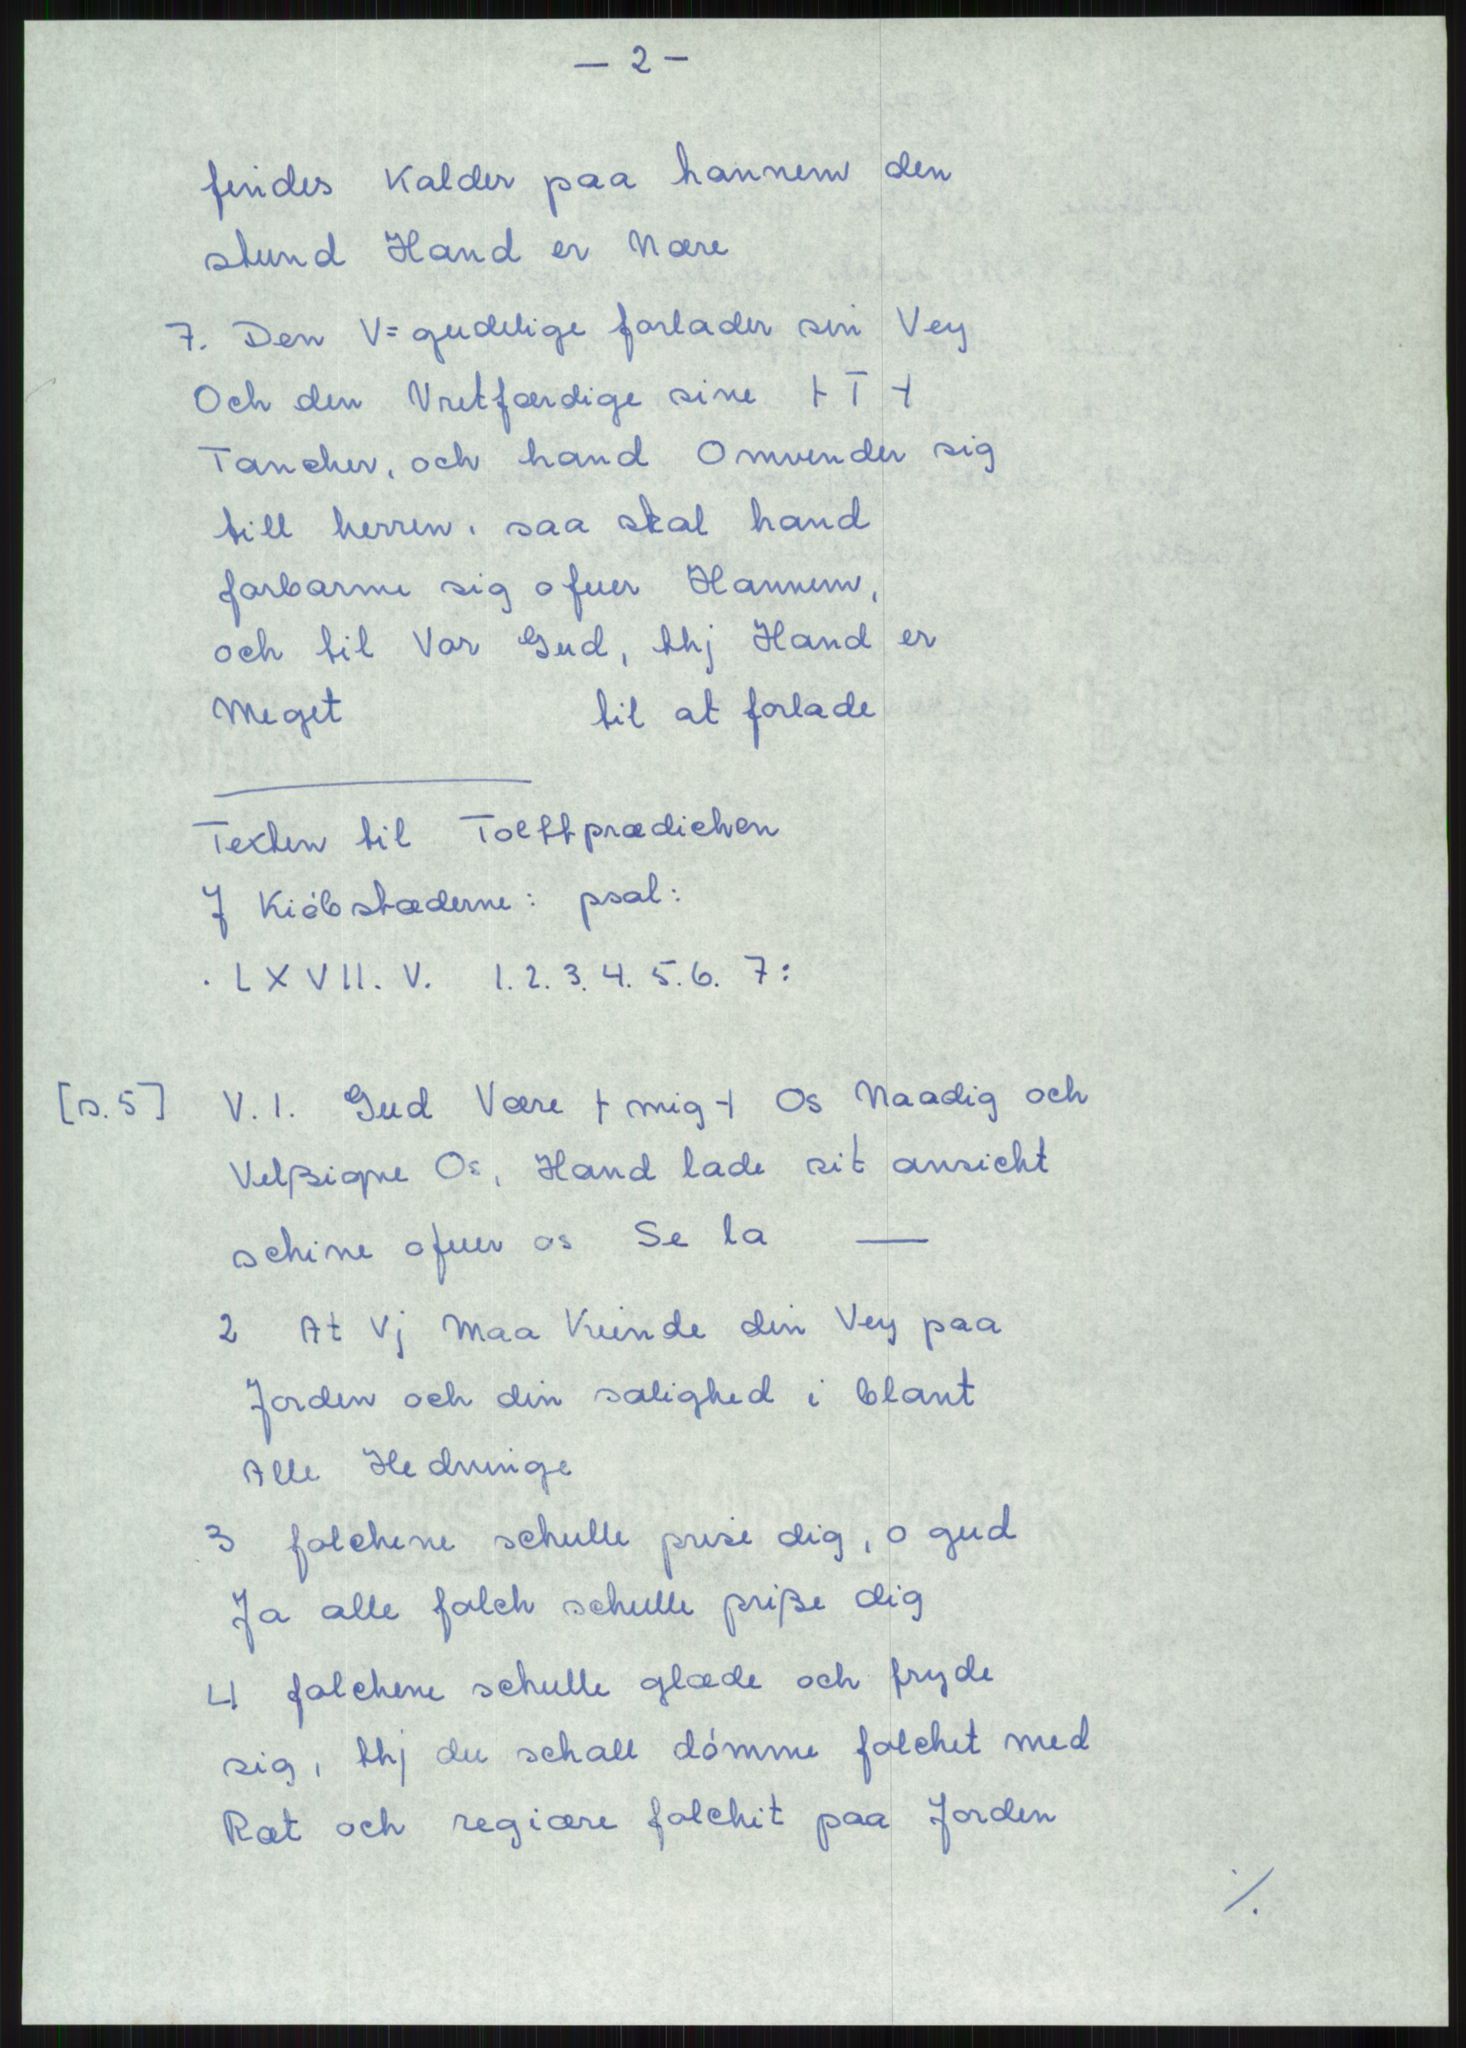 — 2 —
findes Kalder paa hannem den
stund Hand er Nære
7. Den V=gudelige forlader sin Vey
Och den Vretfærdige sine + T +
Tancher, och hand Omvender sig
till herren. saa skal hand
forbarme sig ofuer Hannem,
och til Vor Gud, thj Hand er
Meget til at forlade
Texten til Tolttprædichen
J Kiöbstæderne: psal:
. LXVII. V. 1. 2. 3. 4. 5. 6. 7:
[s. 5] V. 1. Gud Være + mig + Os Naadig och
Velßigne Os, Hand lade sit ansicht
schine ofuer os Se la —
2 At Vj Maa Kiende din Vey paa
Jorden och din salighed i blant
Alle Hedninge
3 folchene schulle prise dig, o gud
Ja alle folch schulle prißе dig
4 folchene schulle glæde och fryde
sig, thj du schall dömme folchet med
Ræt och regiære folchit paa Jorden
·/.